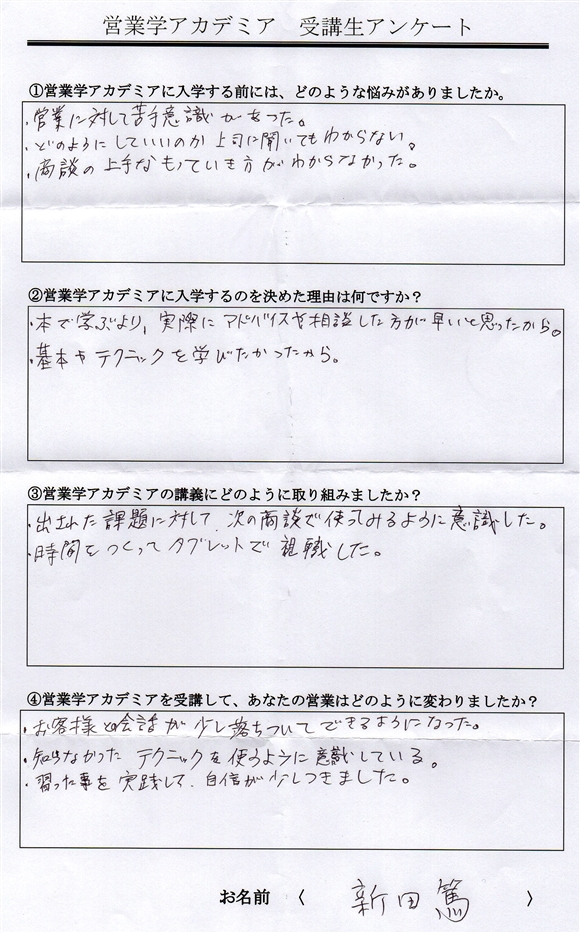 営業学アカデミア 受講生アンケート
①営業学アカデミアに入学する前には、どのような悩みがありましたか。
・営業に対して苦手意識があった。
・どのようにしていいのか上司に聞いてもわからない。
・商談の上手なもっていき方がわからなかった。
②営業学アカデミアに入学するのを決めた理由は何ですか？
・本で学ぶより、実際にアドバイスや相談した方が早いと思ったから。
・基本やテクニックを学びたかったから。
③営業学アカデミアの講義にどのように取り組みましたか？
・出された課題に対して、次の商談で使ってみるように意識した。
・時間をつくってタブレットで視聴した。
④営業学アカデミアを受講して、あなたの営業はどのように変わりましたか？
・お客様と会話が少し落ちついてできるようになった。
・知らなかったテクニックを使うように意識している。
・習った事を実践して、自信が少しつきました。
お名前 〈 新田篤 〉